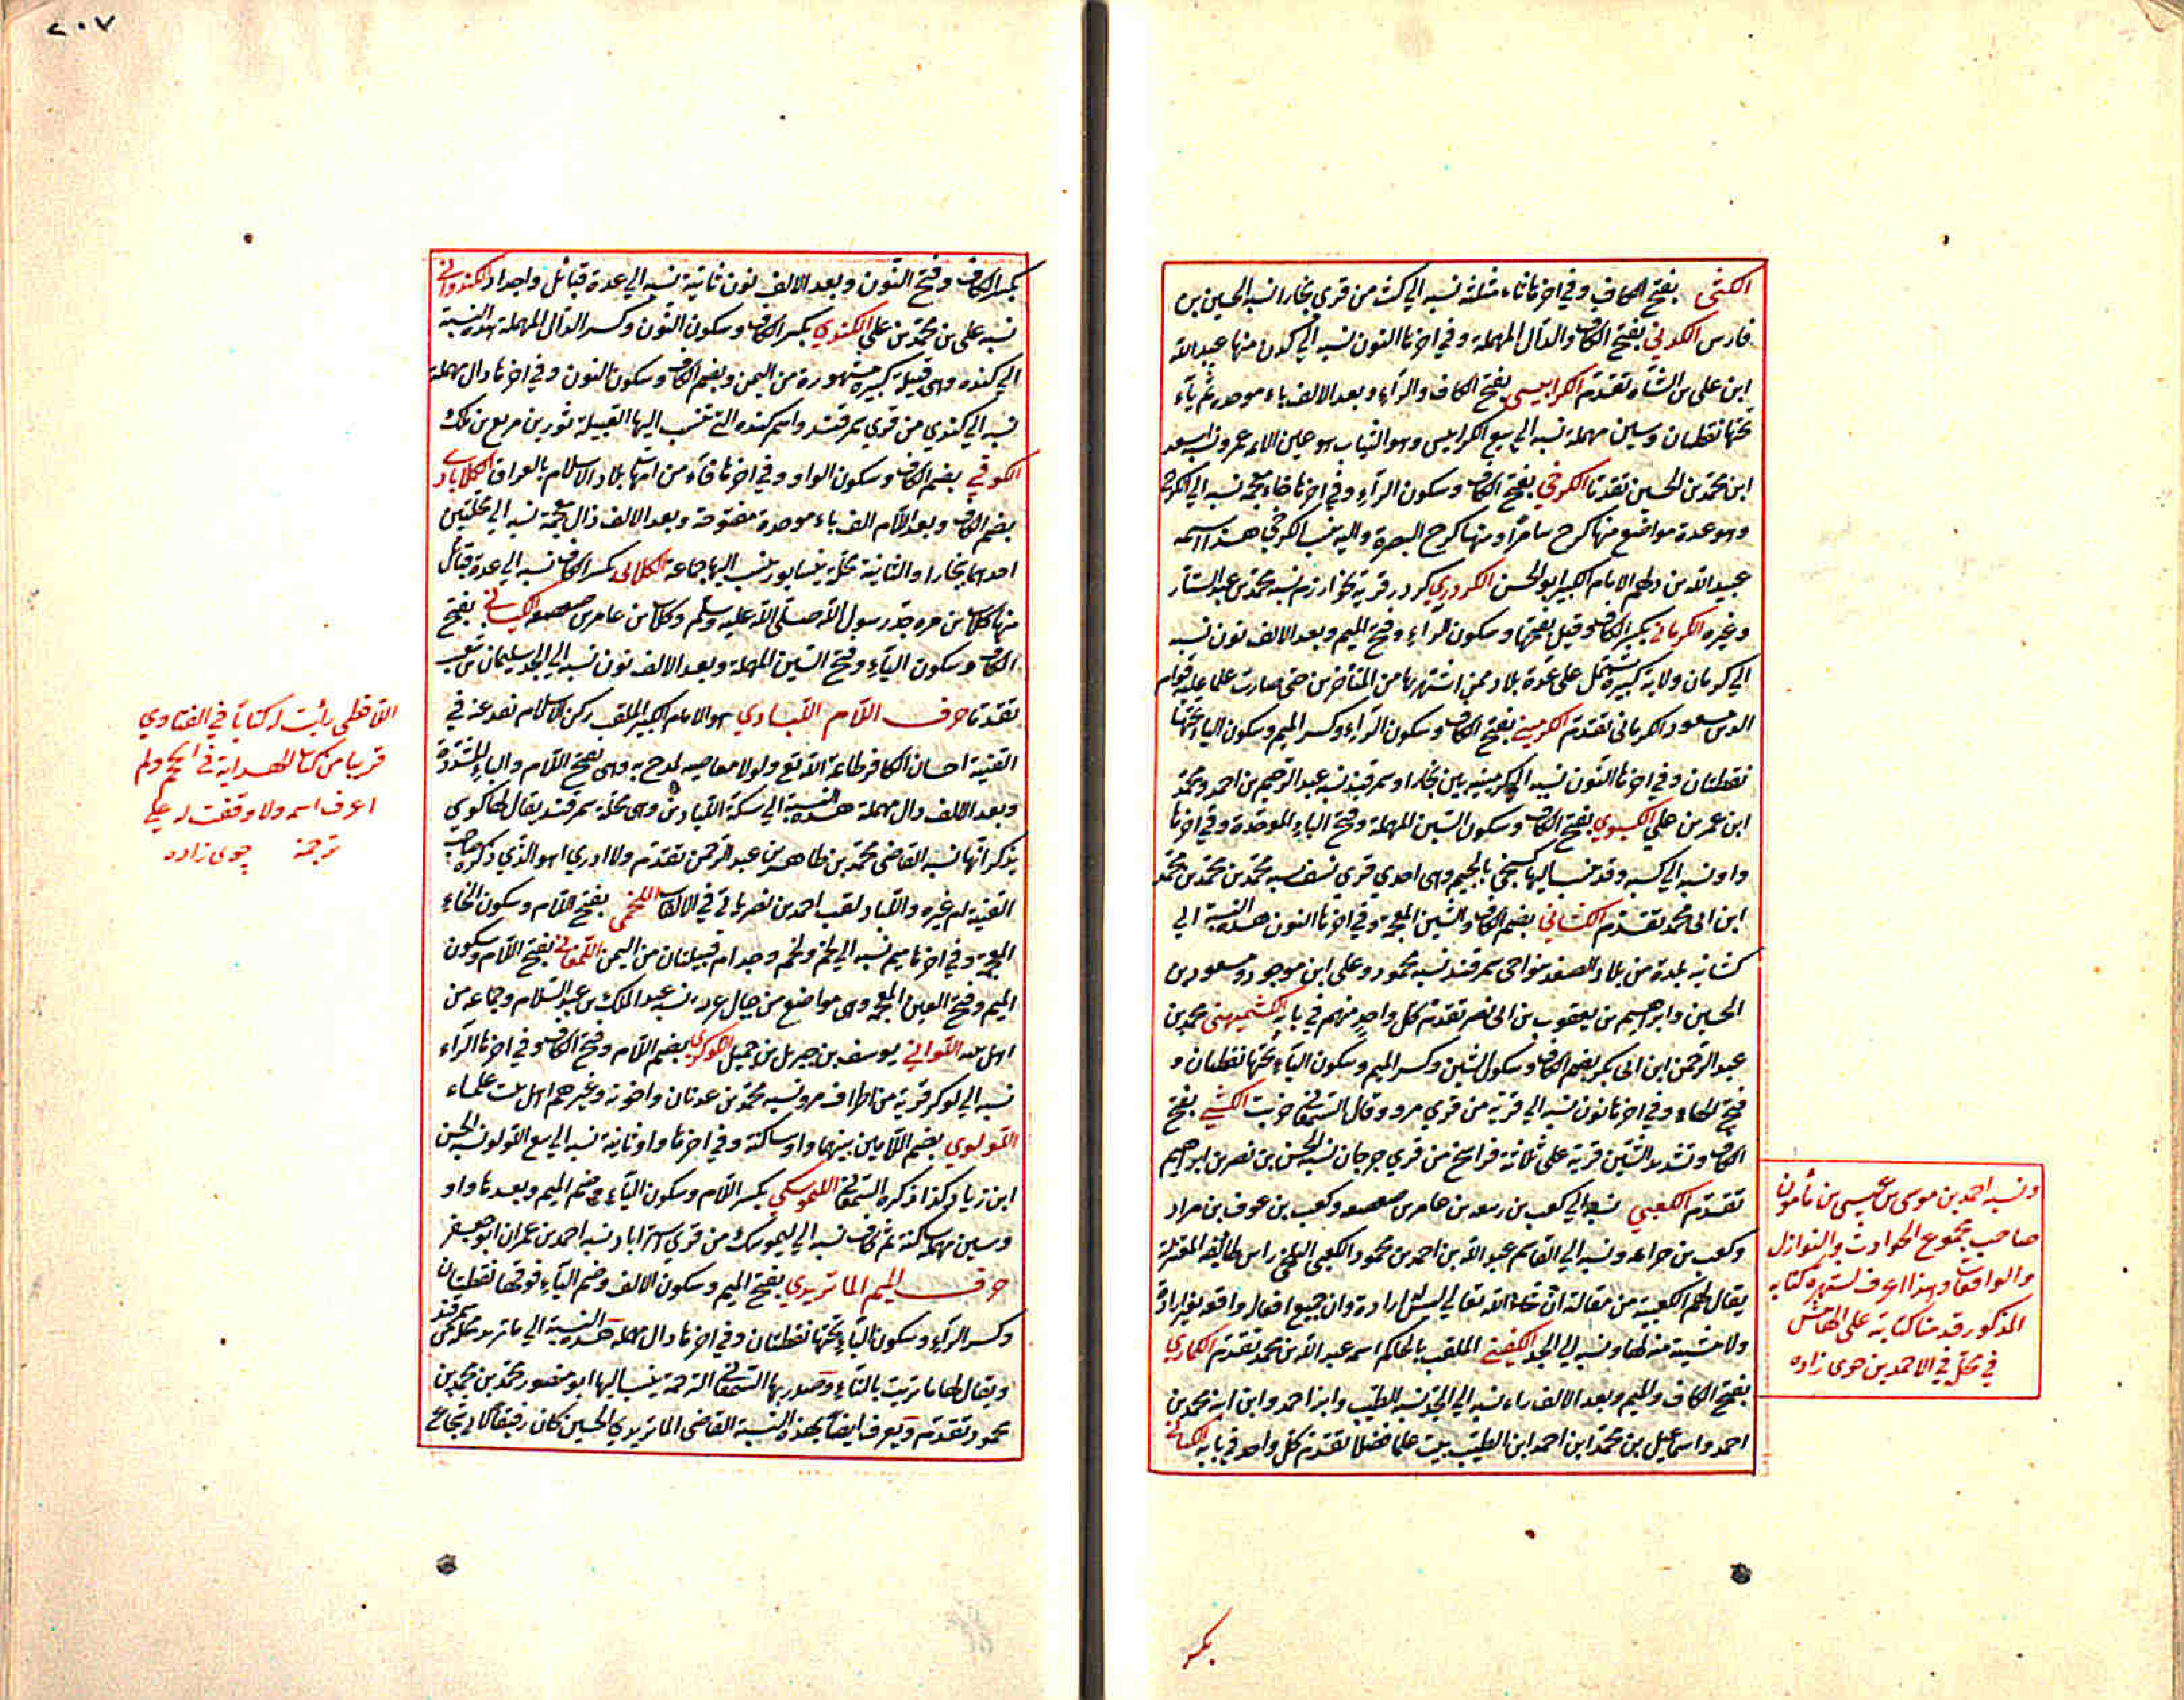 الكثي بفتح الكاف وفي اخرها ثاء مثلثة نسبة الي كث من قري بخارا نسبة الحسين بن
فارس الكدني بفتح الكاف والدال المهملة وفي اخرها النون نسبة الي كدن منها عبد الله
ابن علي بن الشاه تقدم الكرابيسي بفتح الكاف والراء وبعد الالف باء موحدة ثم ياء
تحتها نقطتان وسين مهملة نسبة الي بيع الكرابيس وهو الثياب هو عين الائمة عمر ونسبة اسعد
ابن محمد بن الحسين تقدما الكرخي بفتح الكاف وسكون الراء وفي اخرها خاء معجمة نسبة الي الكرخ
وهو عدة مواضع منها كرخ سامرا ومنها كرخ البصرة واليه ينسب الكرخي هذا اسمه
عبيد الله بن دلهم الامام الكبير ابو الحسن الكردري كردر قرية بخوارزم نسبة محمد بن عبد الستار
وغيره الكرماني بكسر الكاف وقيل بفتحها وسكون الراء وفتح الميم وبعد الالف نون نسبة
الي كرمان ولاية كبيرة تشتمل علي عدة بلاد ممن اشتهر بها من المتأخرين حتي صارت علما عليه قوام
الدين مسعود الكرماني تقدم الكرميني بفتح الكاف وسكون الراء وكسر الميم وسكون الياء تحتها
نقطتان وفي اخرها النون نسبة الي كرمينية بين بخارا وسمرقند نسبة عبد الرحيم بن احمد ومحمد
ابن عمر بن علي الكسبوي بفتح الكاف وسكون السين المهملة وفتح الباء الموحدة وفي اخرها
واو نسبة الي كسبه وقد ينسب اليها كسبجي بالجيم وهي احدي قري نسف نسبة محمد بن محمد بن محمد
ابن ابي محمد تقدم الكشاني بضم الكاف والشين المعجمة وفي اخرها النون هذه النسبة الي
كشانيه بلدة من بلاد الصغد بنواحي سمرقند نسبة محمود وعلي ابن موجود ومسعود بن
الحسين وابراهيم بن يعقوب بن ابي نصر تقدم كل واحد منهم في بابه الكشميهني محمد بن
عبد الرحمن ابن ابي بكر بضم الكاف وسكون الشين وكسر الميم وسكون الياء تحتها نقطتان و
فتح الهاء وفي اخرها نون نسبة الي قرية من قري مرو وقال السمعاني خربت الكشي بفتح
الكاف وتشديد الشين قرية علي ثلاثة فراسخ من قري جرجان نسبة الحسن بن نصر بن ابراهيم
تقدم الكعبي نسبة الي كعب بن ربيعه بن عامر بن صعصعه وكعب بن عوف بن مراد
وكعب بن خزاعه ونسبة الي القاسم عبد الله بن احمد بن محمود الكعبي البلخي راس طائفة المعتزلة
يقال لهم الكعبية من مقالته ان شاء الله تعالي ليس له ارادة وان جميع افعاله واقعة بغير ارادة
ولا مشيئة منه لها ونسبة الي الجد الكفيني الملقب بالحاكم اسمه عبد الله بن محمد تقدم الكماري
بفتح الكاف والميم وبعد الالف راء نسبة الي الجد نسبة الطيب وابنه احمد وابن ابنه محمد بن
احمد واسماعيل بن محمد ابن احمد ابن الطيب بيت علما فضلا تقدم كل واحد في بابه الكناني
ونسبة احمد بن موسى بن عيسى بن مأمون
صاحب مجموع الحوادث والنوازل
والواقعات وهذا اعرف لشهرة كتابه
المذكور قدمنا كتابته على الهامش
في محله في الاحمدين جوى زاده
بكسر
٢٠٧
بكسر الكاف وفتح النون وبعد الالف نون ثانية نسبة الي عدة قبائل واجداد الكندواني
نسبة علي بن محمد بن علي الكندي بكسر الكاف وسكون النون وكسر الدال المهملة هذه النسبة
الي كنده وهي قبيلة كبيرة مشهورة من اليمن وبضم الكاف وسكون النون وفي اخرها دال مهملة
نسبة الي كندي من قري سمرقند واسم كنده التي تنسب اليها القبيلة ثور بن مرتع بن مالك
الكوفي بضم الكاف وسكون الواو وفي اخرها فاء من امهات بلاد الاسلام بالعراق الكلاباذي
بضم الكاف وبعد اللام الف باء موحدة مفتوحة وبعد الالف ذال معجمة نسبة الي محلتين
احدها ببخارا والثانية محلة بنيسابور ينسب اليها جماعة الكلابي بكسر الكاف نسبة الي عدة قبائل
منها كلاب بن مره جد رسول الله صلى الله عليه وسلم وكلاب بن عامر بن صعصعه الكيساني بفتح
الكاف وسكون الياء وفتح السين المهملة وبعد الالف نون نسبة الي الجد سليمان بن شعيب
تقدما حرف اللام اللبادي هو الامام الكبير الملقب ركن الاسلام نقد عنه في
القنية احسان الكافر طاعة الله تع ولولا معاصيه لمدح به وهي بفتح اللام والباء المشددة
وبعد الالف دال مهملة هذه النسبة الي سكة اللبادين وهي محلة سمرقند يقال لها كوي
يذكر انها نسبة القاضي محمد بن طاهر بن عبد الرحمن تقدم ولا ادري اهو الذي ذكره صاحب
القنية ام غيره واللباد لقب احمد بن نصر ياتي في الالقاب اللخمي بفتح اللام وسكون الخاء
المعجمة وفي اخرها ميم نسبة الي لخم ولخم وجدام قبيلتان من اليمن اللمغاني بفتح اللام وسكون
الميم وفتح الغين المعجمة وهي مواضع من جبال غزنه نسبة عبد الملك بن عبد السلام وجماعه من
اهل بيته اللواتي يوسف بن جبريل بن جميل اللوكري بضم اللام وفتح الكاف وفي اخرها الراء
نسبة الي لوكر قرية من اطراف مرو نسبة محمد بن عدنان واخوته وغيرهم اهل بيت علماء
اللولوي بضم اللامين بينهما واو ساكنة وفي اخرها واو ثانية نسبة الي بيع اللولو نسبة الحسن
ابن زياد وكذا ذكره السمعاني الليموسكي بكسر اللام وسكون الياء وضم الميم وبعدها واو
وسين مهملة ساكنة ثم كاف نسبة الي ليموسك من قري استراباد نسبة احمد بن عمران ابو جعفر
حرف الميم الماتريدي بفتح الميم وسكون الالف وضم التاء فوقها نقطتان
وكسر الراء وسكون الياء تحتها نقطتان وفي اخرها دال مهملة هذه النسبة الي ماتريد محلة من سمرقند
ويقال لها ماتريت بالتاء وصدر بها السمعاني الترجمة ينسب اليها ابو منصور محمد بن محمد بن
محمود تقدم ويعرف ايضا بهذه النسبة القاضي الماتريدي الحسين كان رفيقا
اللافظي رأيت له كتابا في الفتاوي
قريبا من كتاب الهداية في الحجم ولم
اعرف اسمه ولا وقفت له علي
ترجمة جوى زاده